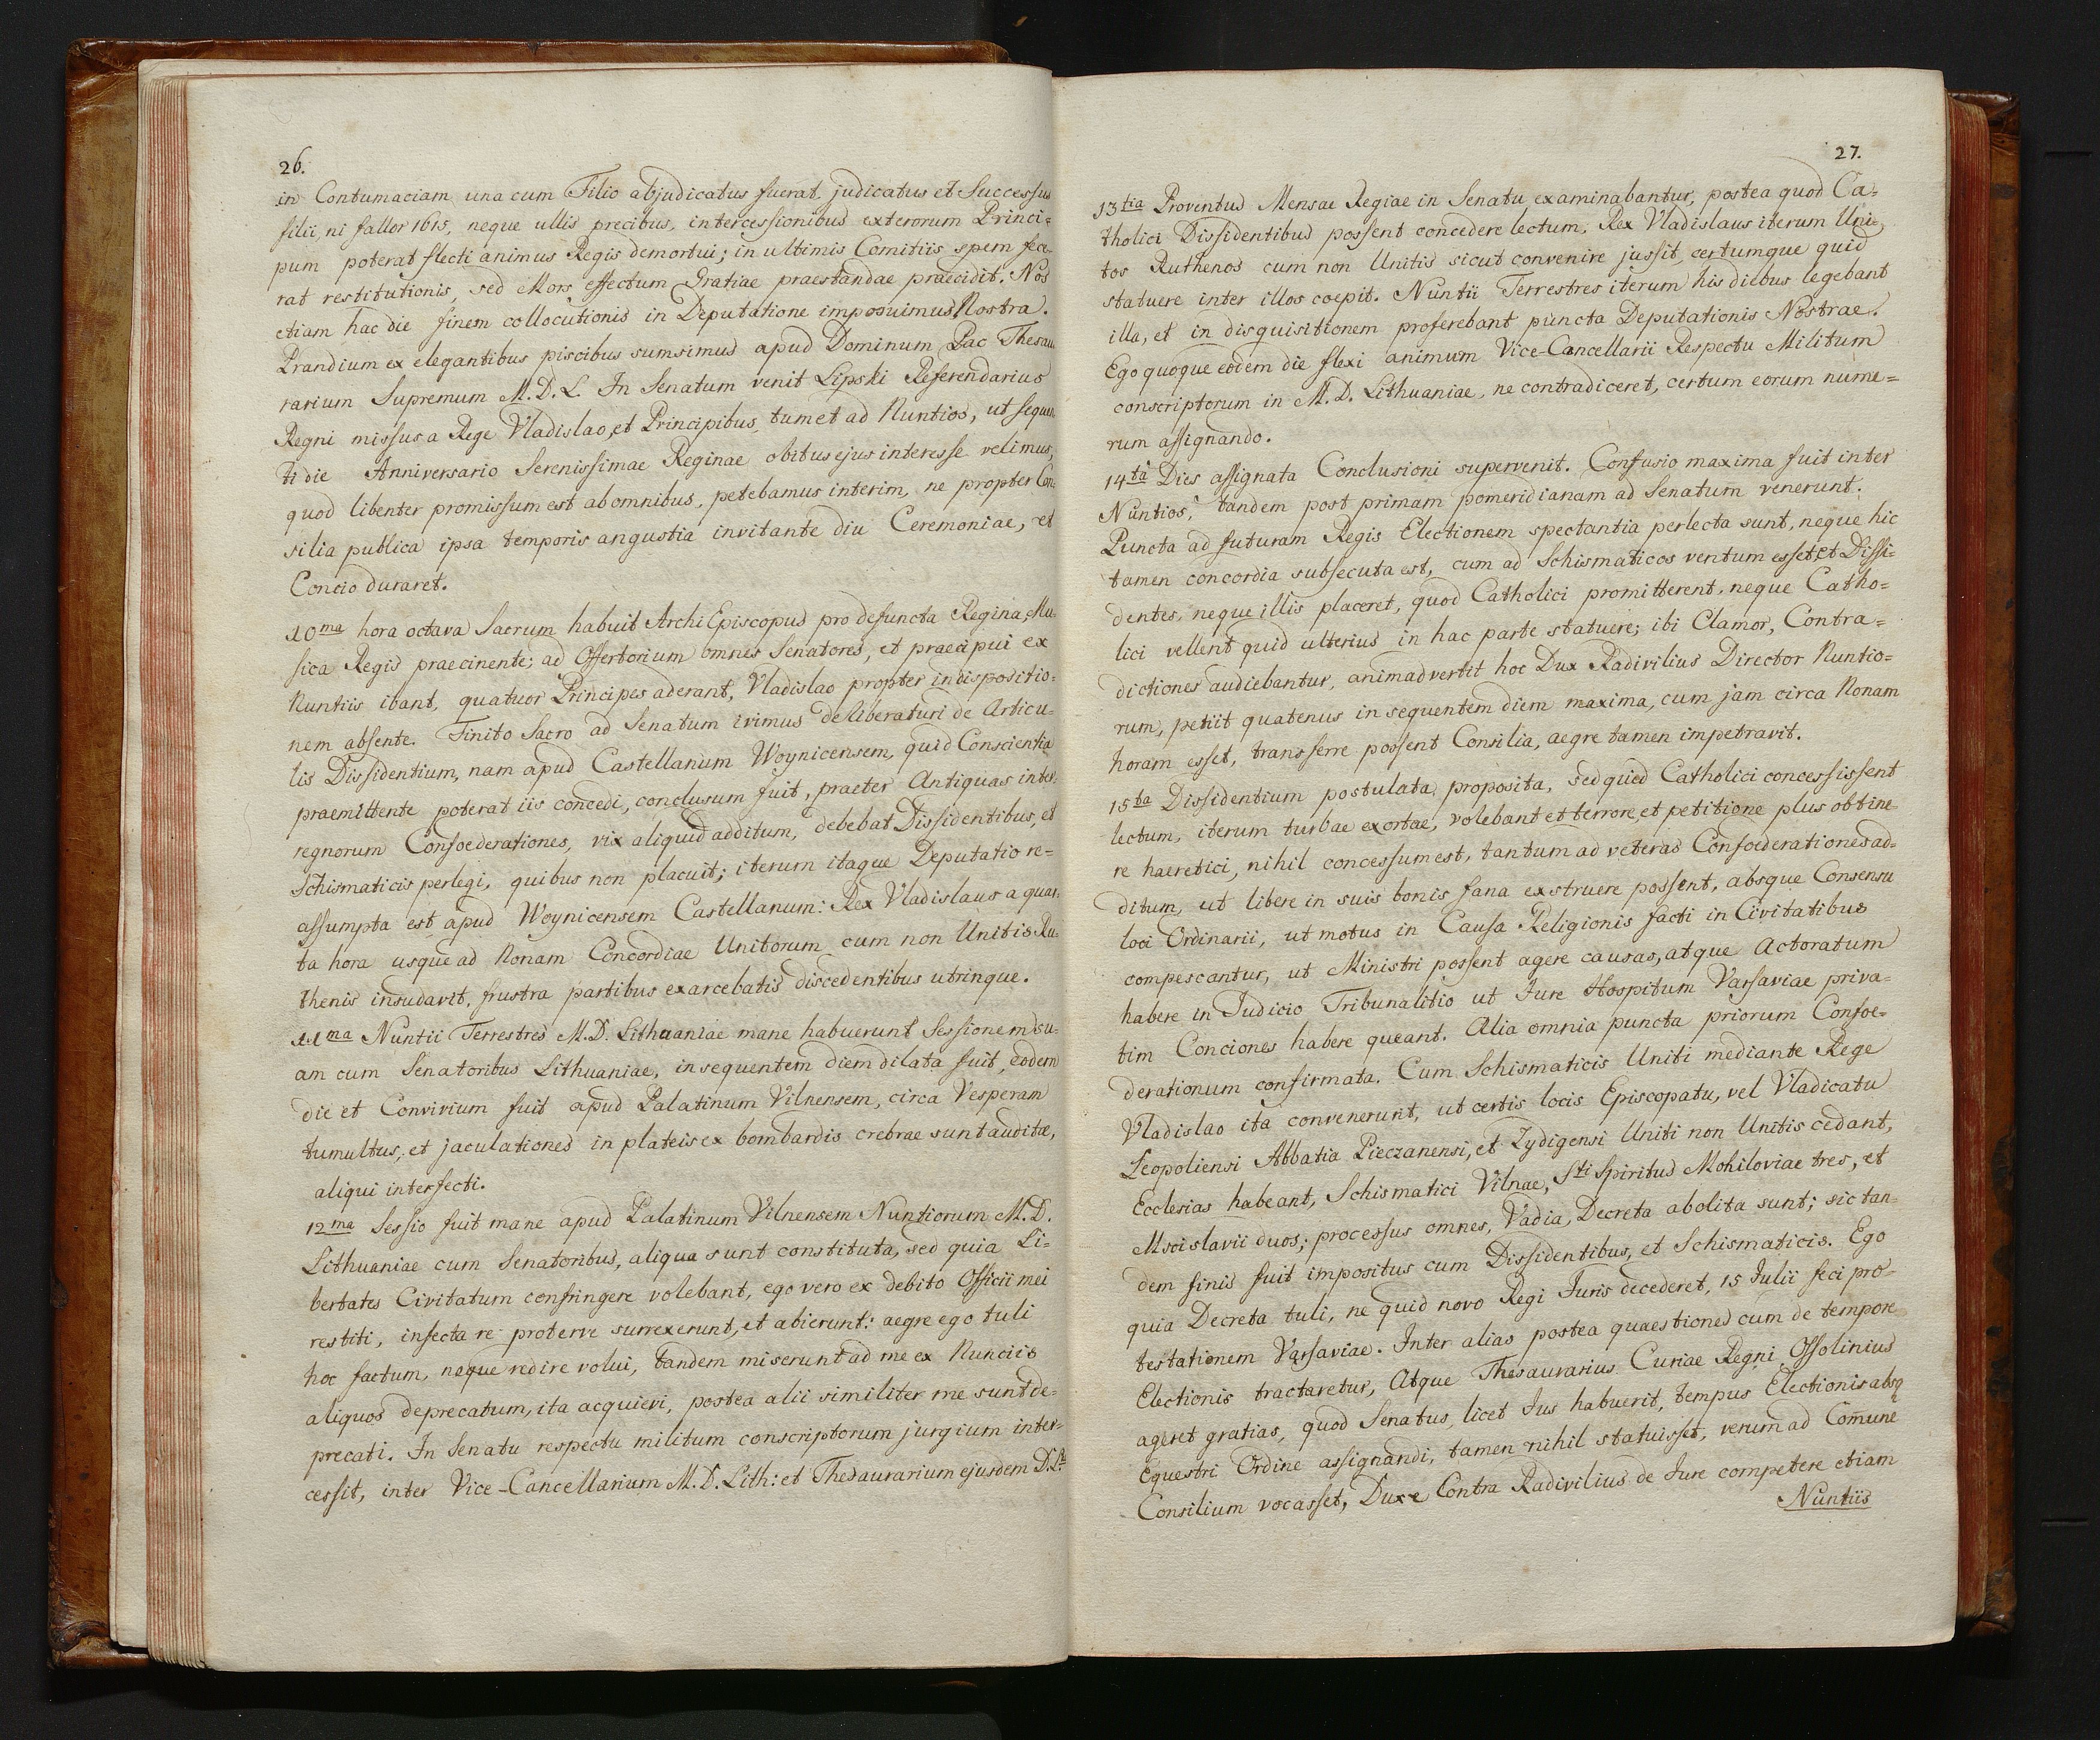 26.
in Contumaciam una cum Filio abjudicatus fuerat judicatus et Successus
filii, ni fallor 1615, neque ullis precibus, intercessionibus exterorum Princi=
pum poterat flecti animus Regis demortui; in ultimis Comitiis spem fece
rat restitutionis, sed Mors effectum Gratiae praestandae praecidit. Nos
etiam hac die finem collocutionis in Deputatione imposuimus Nostra.
Prandium ex elegantibus piscibus sumsimus apud Dominum Pac Thesau
rarium Supremum M. D. L. In Senatum venit Lipski Referendarius
Regni missus a Rege Vladislao, et Principibus, tum et ad Nuntios, ut sequen
ti die Anniversario Serenissimae Reginae obitus ejus interesse velimus,
quod libenter promissum est ab omnibus, petebamus interim, ne propter Con=
silia publica ipsa temporis angustia invitante diu Ceremoniae, et
Concio duraret.
10ma hora octava Sacrum habuit Archi Episcopus pro defuncta Regina, Mu=
sica Regis praecinente; ad Offertorium omnes Senatores, et praecipui ex
Nuntiis ibant, quatuor Principes aderant, Vladislao propter indispositio=
nem absente. Finito Sacro ad Senatum ivimus deliberaturi de Articu=
lis Dissidentium, nam apud Castellanum Woynicensem, quid Conscientia
praemittente poterat iis concedi, conclusum fuit, praeter Antiquas inter=
regnorum Confoederationes, vix aliquid additum, debebat Dissidentibus, et
Schismaticis perlegi, quibus non placuit; iterum itaque Deputatio re=
assumpta est apud Woynicensem Castellanum: Rex Vladislaus a quar=
ta hora usque ad Nonam Concordiae Unitorum cum non Unitis Ru=
thenis insudavit, frustra partibus exarcebatis discedentibus utrinque.
11ma Nuntii Terrestres M. D. Lithuaniae mane habuerunt Sessionem su=
am cum Senatoribus Lithuaniae, in sequentem diem dilata fuit, eodem
die et Convivium fuit apud Palatinum Vilnensem, circa Vesperam
tumultus, et jaculationes in plateis ex bombardis crebrae sunt auditæ,
aliqui interfecti.
12ma Sessio fuit mane apud Palatinum Vilnensem Nuntiorum M. D.
Lithuaniae cum Senatoribus, aliqua sunt constituta, sed quia Li=
bertates Civitatum confringere volebant, ego vero ex debito Officii mei
restiti, infecta re proterve surrexerunt, et abierunt: aegre ego tuli
hoc factum, neque redire volui, tandem miserunt ad me ex Nunciis
aliquos deprecatum, ita acquievi, postea alii similiter me sunt de=
precati. In Senatu respectu militum conscriptorum jurgium inter=
cessit, inter Vice-Cancellarium M. D. Lith: et Thesaurarium ejusdem D. L.
27.
13tia Proventus Mensae Regiae in Senatu examinabantur, postea quod Ca=
tholici Dissidentibus possent concedere lectum. Rex Vladislaus iterum Uni=
tos Ruthenos cum non Unitis sicut convenire jussit, certumque quid
statuere inter illos coepit. Nuntii Terrestres iterum his diebus legebant
illa, et in disquisitionem proferebant puncta Deputationis Nostrae.
Ego quoque eodem die flexi animum Vice-Cancellarii Respectu Militum
conscriptorum in M. D. Lithuaniae, ne contradiceret, certum eorum nume=
rum assignando.
14ta Dies assignata Conclusioni supervenit. Confusio maxima fuit inter
Nuntios, tandem post primam pomeridianam ad Senatum venerunt.
Puncta ad futuram Regis Electionem spectantia perlecta sunt, neque hic
tamen concordia subsecuta est, cum ad Schismaticos ventum esset, et Dissi=
dentes, neque illis placeret, quod Catholici promitterent, neque Catho=
lici vellent quid ulterius in hac parte statuere; ibi Clamor, Contra=
dictiones audiebantur, animadvertit hoc Dux Radivilius Director Nuntio=
rum, petiit quatenus in sequentem diem maxima, cum jam circa Nonam
horam esset, transferre possent Consilia, aegre tamen impetravit.
15ta Dissidentium postulata proposita, sed quid Catholici concessissent
lectum, iterum turbae exortae, volebant et terrore, et petitione plus obtine
re haeretici, nihil concessum est, tantum ad veteras Confoederationes ad=
ditum, ut libere in suis bonis fana exstruere possent, absque Consensu
loci Ordinarii, ut motus in Causa Religionis facti in Civitatibus
compescantur, ut Ministri possent agere causas, atque Actoratum
habere in Judicio Tribunalitio ut Jure Hospitum Varsaviae priva=
tim Conciones habere queant. Alia omnia puncta priorum Confoe=
derationum confirmata. Cum Schismaticis Uniti mediante Rege
Vladislao ita convenerunt, ut certis locis Episcopatu, vel Vladicatu
Leopoliensi Abbatia Pieczanensi, et Zydigensi Uniti non Unitis cedant,
Ecclesias habeant, Schismatici Vilnae, Sti Spiritus Mohiloviae tres, et
Mscislavii duos; processus omnes, Vadia, Decreta abolita sunt; sic tan=
dem finis fuit impositus cum Dissidentibus, et Schismaticis. Ego
quia Decreta tuli, ne quid novo Regi Juris decederet, 15 Julii feci pro=
testationem Varsaviae. Inter alias postea quaestiones cum de tempore
Electionis tractaretur, Atque Thesaurarius Curiae Regni Ossolinius
ageret gratias, quod Senatus, licet Jus habuerit, tempus Electionis absq
Equestri Ordine assignandi, tamen nihil statuisset, verum ad Comune
Consilium vocasset, Duxe Contra Radivilius de Jure competere etiam
Nuntiis